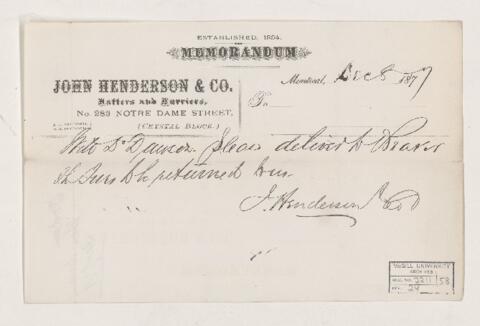 ESTABLISHED, 1834.
MEMORANDUM
JOHN HENDERSON & CO.
Hatters and Furriers,
No. 283 NOTRE DAME STREET,
(CRYSTAL BLOCK.)
Montreal, Dec 8 1877
To
Dr Dawson please deliver to Bearer
Furs to be returned
J. Henderson & Co
McGILL UNIVERSITY
ARCHIVES
2211 / 58